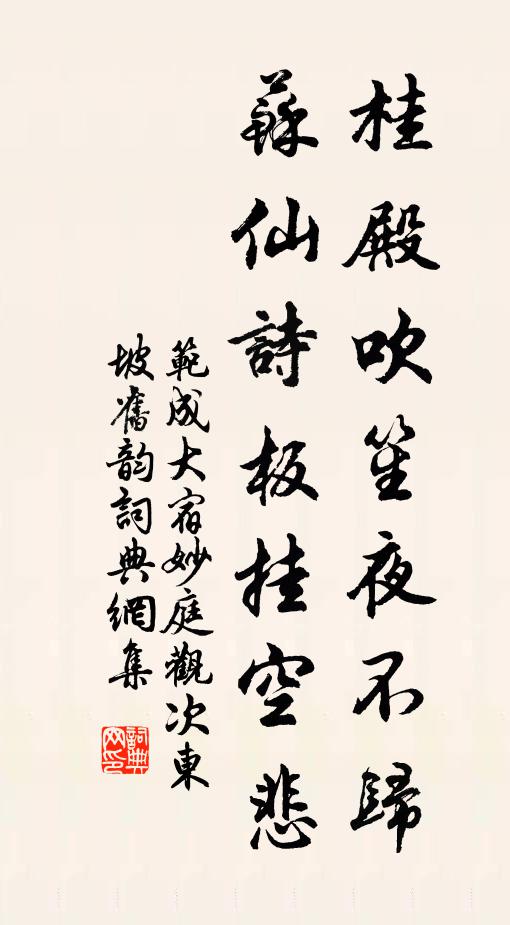 桂殿吹笙夜不歸
蘇仙詩板挂空悲
範成大宿妙庭觀次東
坡舊韵詞典網集
詞典
网印